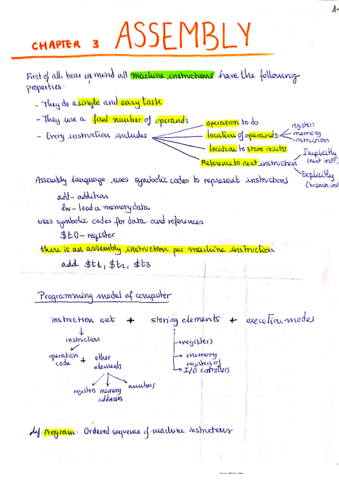 CHAPTER 3 ASSEMBLY
First of all, bear in mind all machine instructions have the following
properties:
- They do a single and easy task
- They use a fixed number of operands
- Every instruction includes
operation to do
location of operands
registers
memory
instruction
location to store results
Reference to next instruction
Implicitly
(next inst)
Explicitly
(branch inst)
Assembly language uses symbolic codes to represent instructions
add - addition
lw - load a memory data
uses symbolic codes for data and references
$t0 - register
there is an assembly instruction per machine instruction
add $t1, $t2, $t3
Programming model of computer
instruction set + storing elements + execution modes
instruction
operation code + other elements
registers memory addresses numbers
registers
memory
registers of
I/O controllers
def Program: Ordered sequence of machine instructions